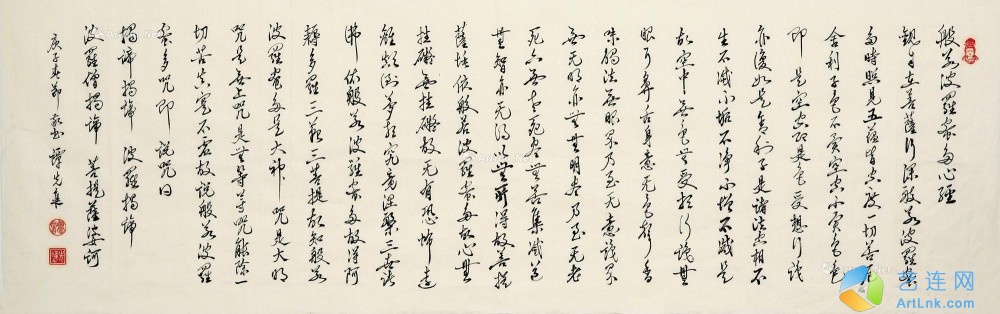 般若波羅蜜多心經
觀自在菩薩行深般若波羅蜜
多時照見五蘊皆空度一切苦厄
舍利子色不異空空不異色色
即是空空即是色受想行識
亦復如是舍利子是諸法空相不
生不滅不垢不淨不增不減是
故空中無色無受想行識無
眼耳鼻舌身意无色聲香
味觸法無眼界乃至无意識界
無无明亦無無明盡乃至无老
死亦無老死盡無苦集滅道
無智亦无得以無所得故菩提
薩埵依般若波羅蜜多故心無
挂礙無挂礙故无有恐怖遠
離顛倒夢想究竟涅槃三世諸
佛依般若波羅蜜多故得阿
耨多羅三藐三菩提故知般若
波羅蜜多是大神咒是大明
咒是無上咒是無等等咒能除一
切苦真實不虛故說般若波羅
蜜多咒即說咒曰
揭諦揭諦 波羅揭諦
波羅僧揭諦 菩提薩婆訶
庚子春節敬書
艺连网
ArtLnk.com